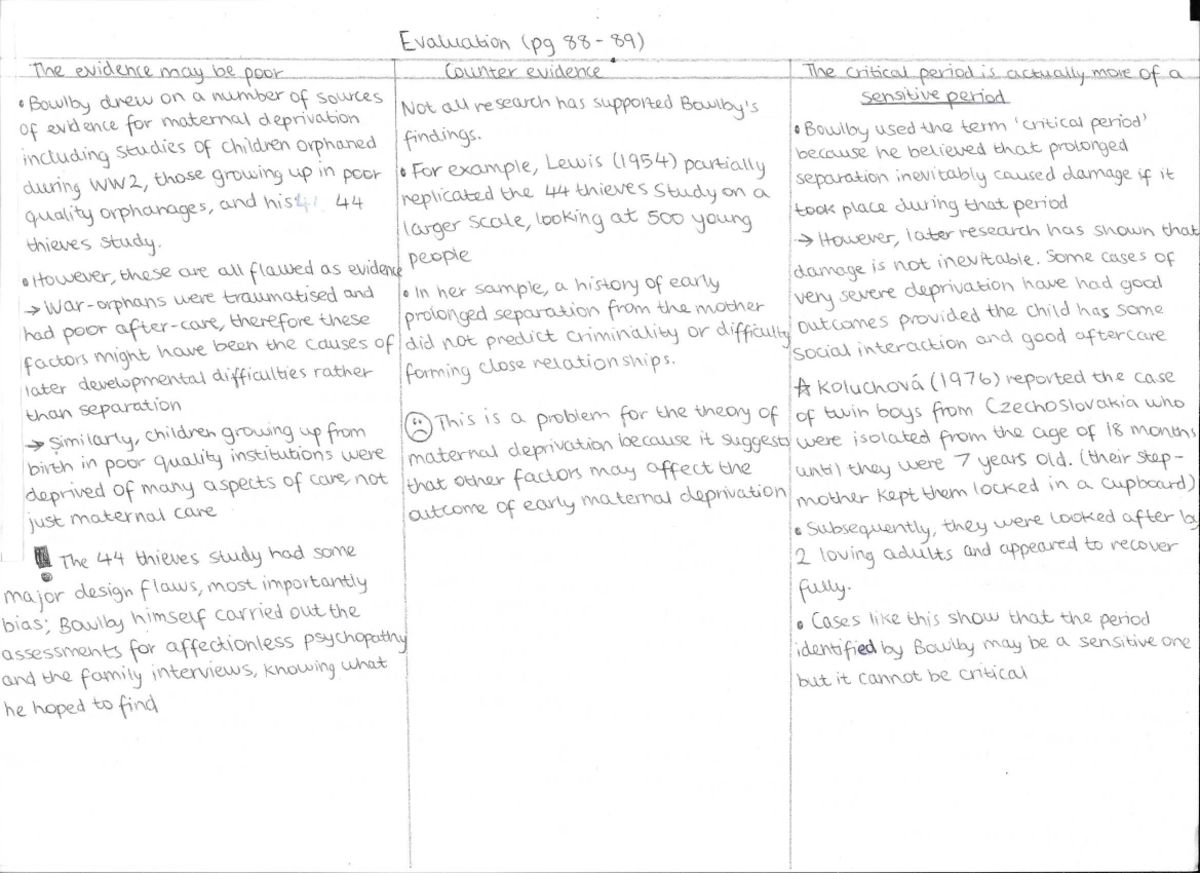 Evaluation (pg 88-89)
The evidence may be poor
• Bowlby drew on a number of sources
of evidence for maternal deprivation
including studies of children orphaned
during WW2, those growing up in poor
quality orphanages, and his 44
thieves study.
• However, these are all flawed as evidence
→ War-orphans were traumatised and
had poor after-care, therefore these
factors might have been the causes of
later developmental difficulties rather
than separation
→ Similarly, children growing up from
birth in poor quality institutions were
deprived of many aspects of care, not
just maternal care
The 44 thieves study had some
major design flaws, most importantly
bias; Bowlby himself carried out the
assessments for affectionless psychopathy
and the family interviews, knowing what
he hoped to find
Counter evidence
Not all research has supported Bowlby's
findings.
• For example, Lewis (1954) partially
replicated the 44 thieves study on a
larger scale, looking at 500 young
people
• In her sample, a history of early
prolonged separation from the mother
did not predict criminality or difficulty
forming close relationships.
This is a problem for the theory of
maternal deprivation because it suggests
that other factors may affect the
outcome of early maternal deprivation
The critical period is actually more of a
sensitive period
• Bowlby used the term 'critical period'
because he believed that prolonged
separation inevitably caused damage if it
took place during that period
→ However, later research has shown that
damage is not inevitable. Some cases of
very severe deprivation have had good
outcomes provided the child has some
social interaction and good aftercare
☆ Koluchová (1976) reported the case
of twin boys from Czechoslovakia who
were isolated from the age of 18 months
until they were 7 years old. (their step-
mother kept them locked in a cupboard)
• Subsequently, they were looked after by
2 loving adults and appeared to recover
fully.
• Cases like this show that the period
identified by Bowlby may be a sensitive one
but it cannot be critical